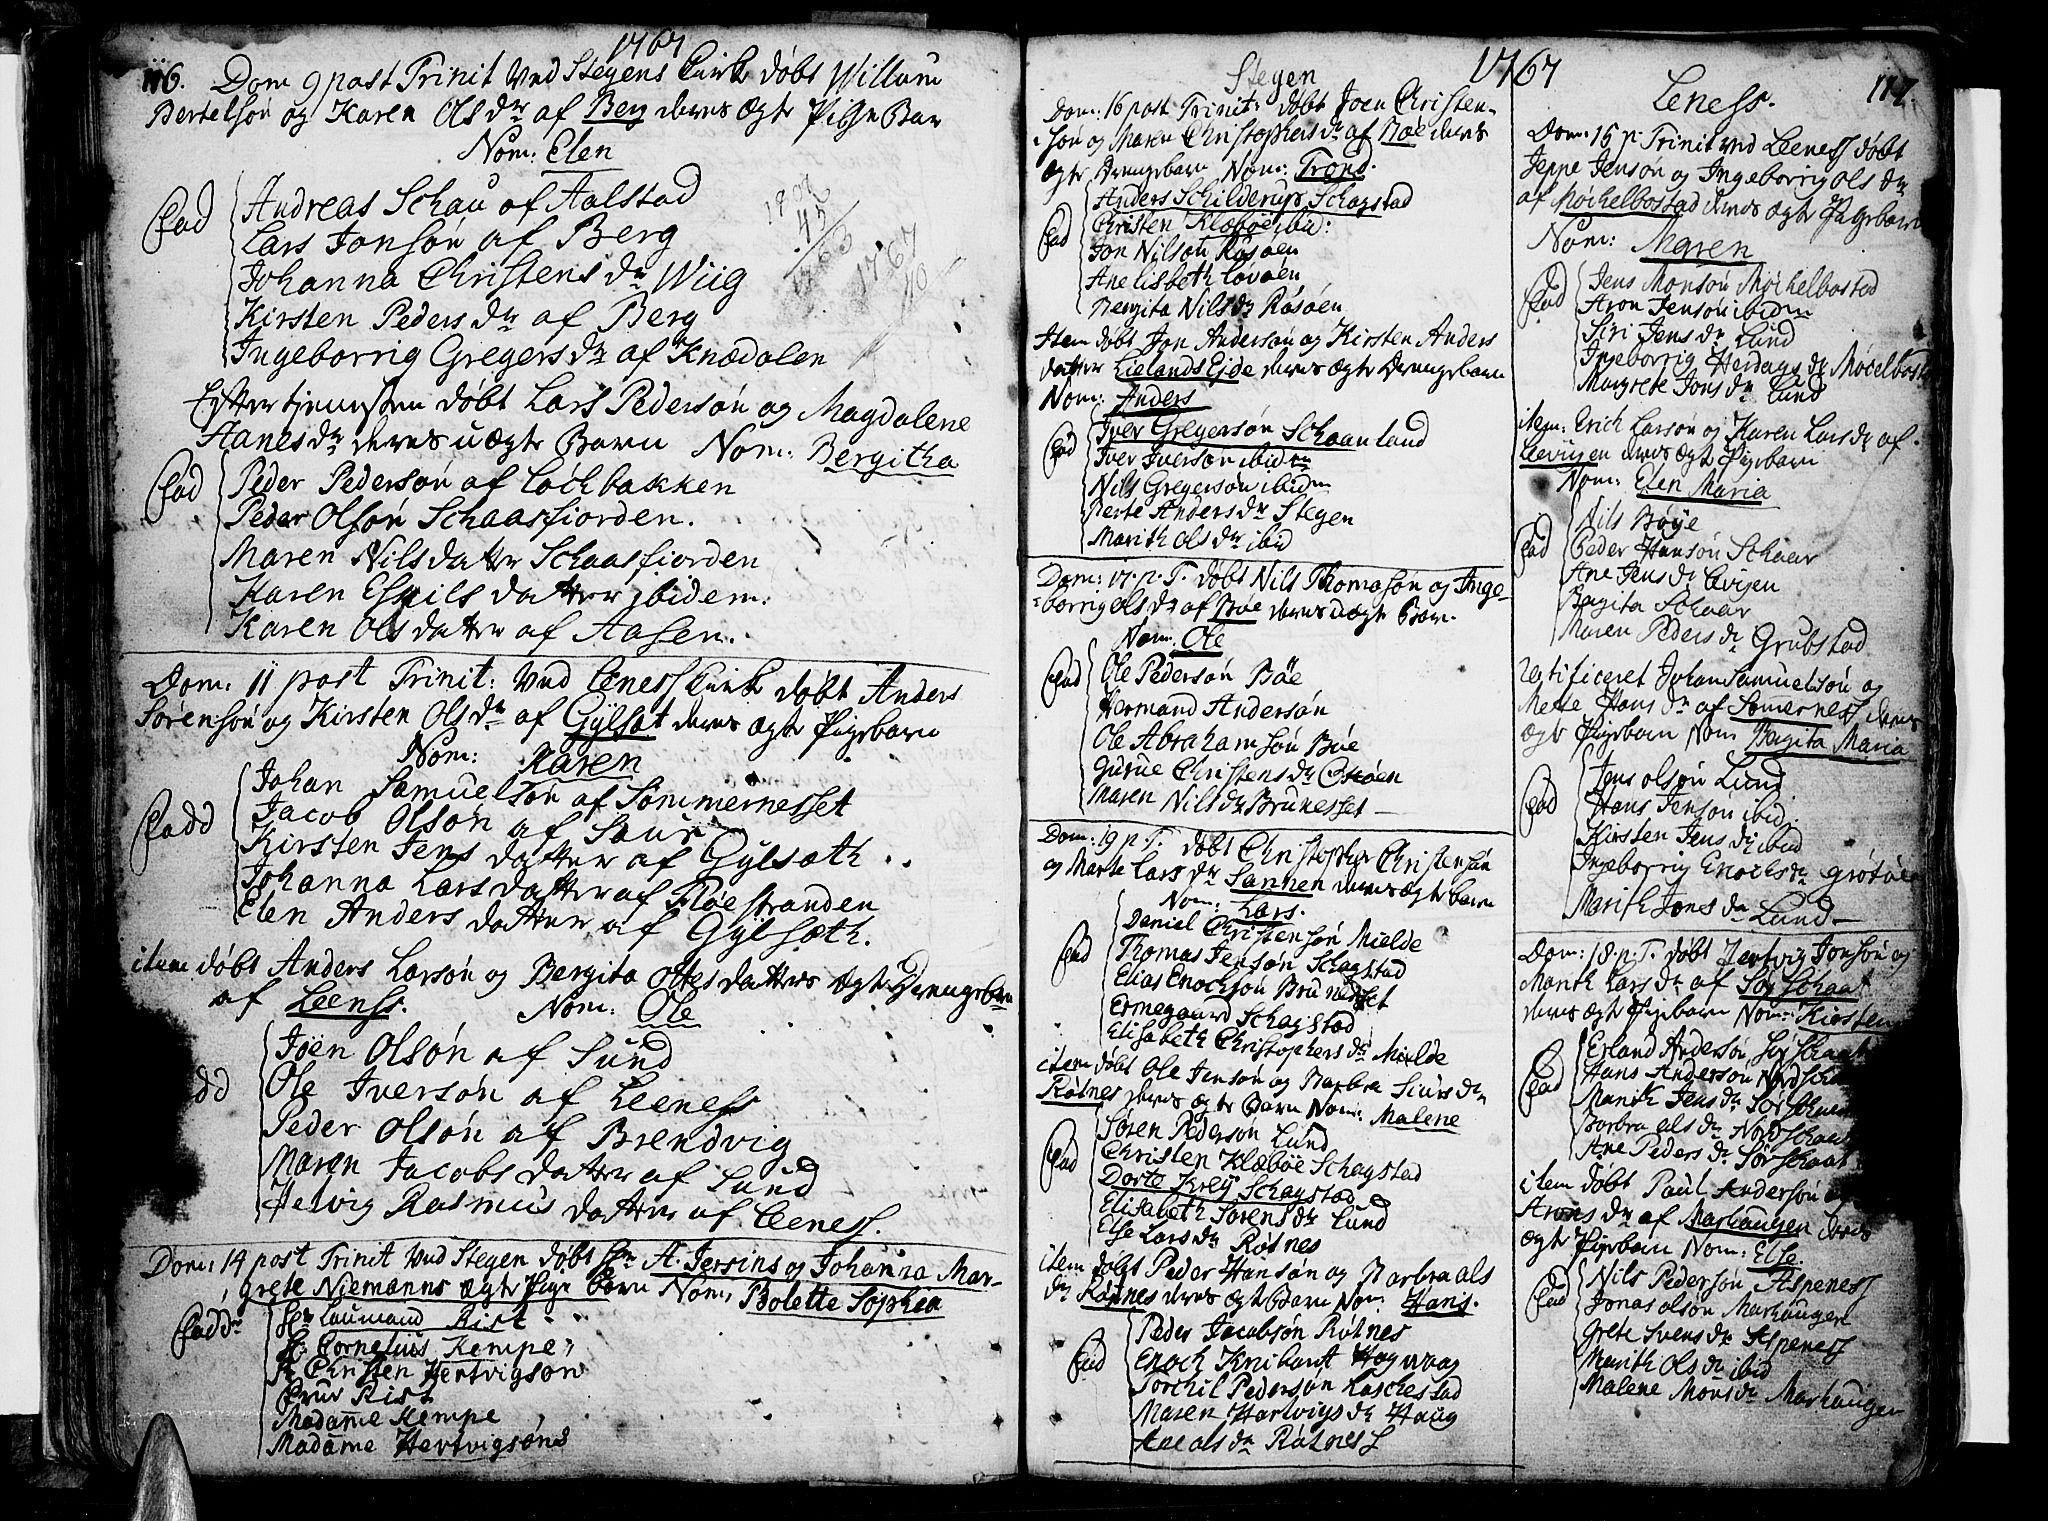 1767
116. Dom 9 post Trinit ved Stegens Kirke døbt Willum
Bertelsøn og Karen Olsdr af Berg deres ægte Pige Barn
Nom: Elen
Fad
Andreas Schau af Aalstad
Lars Jonsøn af Berg
Johanna Christensdr Wiig
Kirsten Pedersdr af Berg
Ingeborrig Gregersdr af Knædalen
1767
Efter tjenesten døbt Lars Pedersøn og Magdalene
Hanesdr deres uægte Barn Nom: Bergitha
Fad
Peder Pedersøn af Lochbakken
Peder Olsøn Schaasfiorden.
Maren Nilsdatter Schaasfiorden
Karen Eskilsdatter ibidem:
Karen Olsdatter af Aasen.
Dom: 11 post Trinit: ved Leeness Kirke døbt Anders
Sørensøn og Kirsten Olsdr af Gylset deres ægte Pigebarn
Nom: Karen
Fadd
Johan Samuelsøn af Sommernesset
Jacob Olsøn af
Kirsten Jensdatter af Gylsæth
Johanna Larsdatter af Røestranden
Elen Andersdatter af Gylsæth.
item døbt Anders Larsøn og Bergita Ottesdatters ægte Drengebarn
af Leenss. Nom: Ole
Joen Olsøn af Lund
Ole Iversøn af Leeness
Peder Olsøn af Brendvig
Maren Jacobsdatter af Lund
Helvig Rasmusdatter af Leeness.
Dom: 14 post Trinit ved Stegen døbt Hr A. Jersins og Johanna Mar-
grete Niemanns ægte Pige barn Nom: Bolette Sophia
Fadd
Hr Laumand Rist
Hr Cornelius Kempe
Hr Christen Hertvigson
Frue Rist
Madame Kempe
Madame Hertvigsøns
1767
Stegen
Dom: 16 post Trinit: døbt Joen Christen-
søn og Maren Christophersdr af Bøe deres
ægte Drengebarn Nom: Trond.
Fad
Anders Schilderup Schagstad
Christen Klæbøe ibid:
Jon Nilsøn Røsøen
Ane Lisbeth Lovøen
Bergita Nilsdr Røsøen
Item døbt Jon Andersøn og Kirsten Anders
datter Lielands Ejde deres ægte Drengebarn
Nom: Anders
Fad
Iver Gregersøn Schaanland
Iver Iversøn ibidem
Nils Gregersøn ibidm
Berte Andersdr Stegen
Marith Olsdr ibid
Dom: 17. p. T. døbt Nils Thomasøn og Inge-
borrig Olsdr af Bøe deres uægte Barn.
Nom: Ole
Fad
Ole Pedersøn Bøe
Hermand Andersøn
Ole Abrahamsøn Bøe
Gurue Christensdr
Maren Nilsdr Brunesset
Dom: 19 p. T. døbt Christopher Christensøn
og Marte Larsdr Sannen deres ægte barn
Nom: Lars.
Fad
Daniel Christensøn Mielde
Thomas Jensøn Schagstad
Elias Enochsøn Brunesset
Ermegaard Schagstad
Elisabeth Christophersdr Mielde
item døbt Ole Jensøn og Barbra Siursdr
Røtnes deres ægte Barn Nom: Malene
Fad
Søren Pedersøn Lund
Christen Klæbøe Schagstad
Dorte Krey Schagstad
Elisabeth Sørensdr Lund
Else Larsdr Røtnes
item døbt Peder Hansøn og Barbra Ols
dr Røtnes deres ægte Barn Nom: Hans.
Fad
Peder Jacobsøn Røtnes
Enoch Hogwaag
Torchil Pedersøn Laschestad
Maren Hartvigsdr Haug
Ane Olsdr Røtness
Leness. 117.
Dom: 15 p. Trinit ved Leeness døbt
Jeppe Jensøn og Ingeborrig Olsdr
af Møchelbostad deres ægte Pigebarn
Nom: Maren
Fad
Jens Monsøn Møchelbostad
Aron Jensøn ibidem
Siri Jensdr Lund
Ingeborrig Herdagsdr Møcelbostad
Margrete Jonsdr Lund
item: Erich Larsøn og Karen Larsdr af
Leevigen deres ægte Pigebarn
Nom: Elen Maria
Fad
Nils Bøye
Peder Hansøn Schaar
Ane Jensdr Levigen
Begita Schaar
Maren Pedersdr Grubstad
Certificeret Johan Samuelsøn og
Mette Hansdr af Somernes deres
ægte Pigebarn Nom: Begita Maria
Fad
Jens Olsøn Lund
Hans Jensøn ibid:
Kirsten Jensdr ibid
Ingeborrig Enochsdr Grøtøen
Marith Jonsdr Lund
Dom: 18. p. T. døbt Hertvig Jonsøn og
Marith Larsdr af Sørschaat
deres ægte Pigebarn Nom: Kirsten
Fad
Erland Andersøn Sørschaat
Hans Andersøn
Marith Jensdr
Barbra Olsdr
Ane Pedersdr Sørschaat
item døbt Paul Andersøn
Aronsdr af Marhaugen deres
ægte Pigebarn Nom: Else
Fad
Nils Pedersøn Aspeness
Jonas Olsøn Marhaugen
Grete Svensdr Aspeness
Marith Olsdr ibid
Malene Monsdr Marhaugen